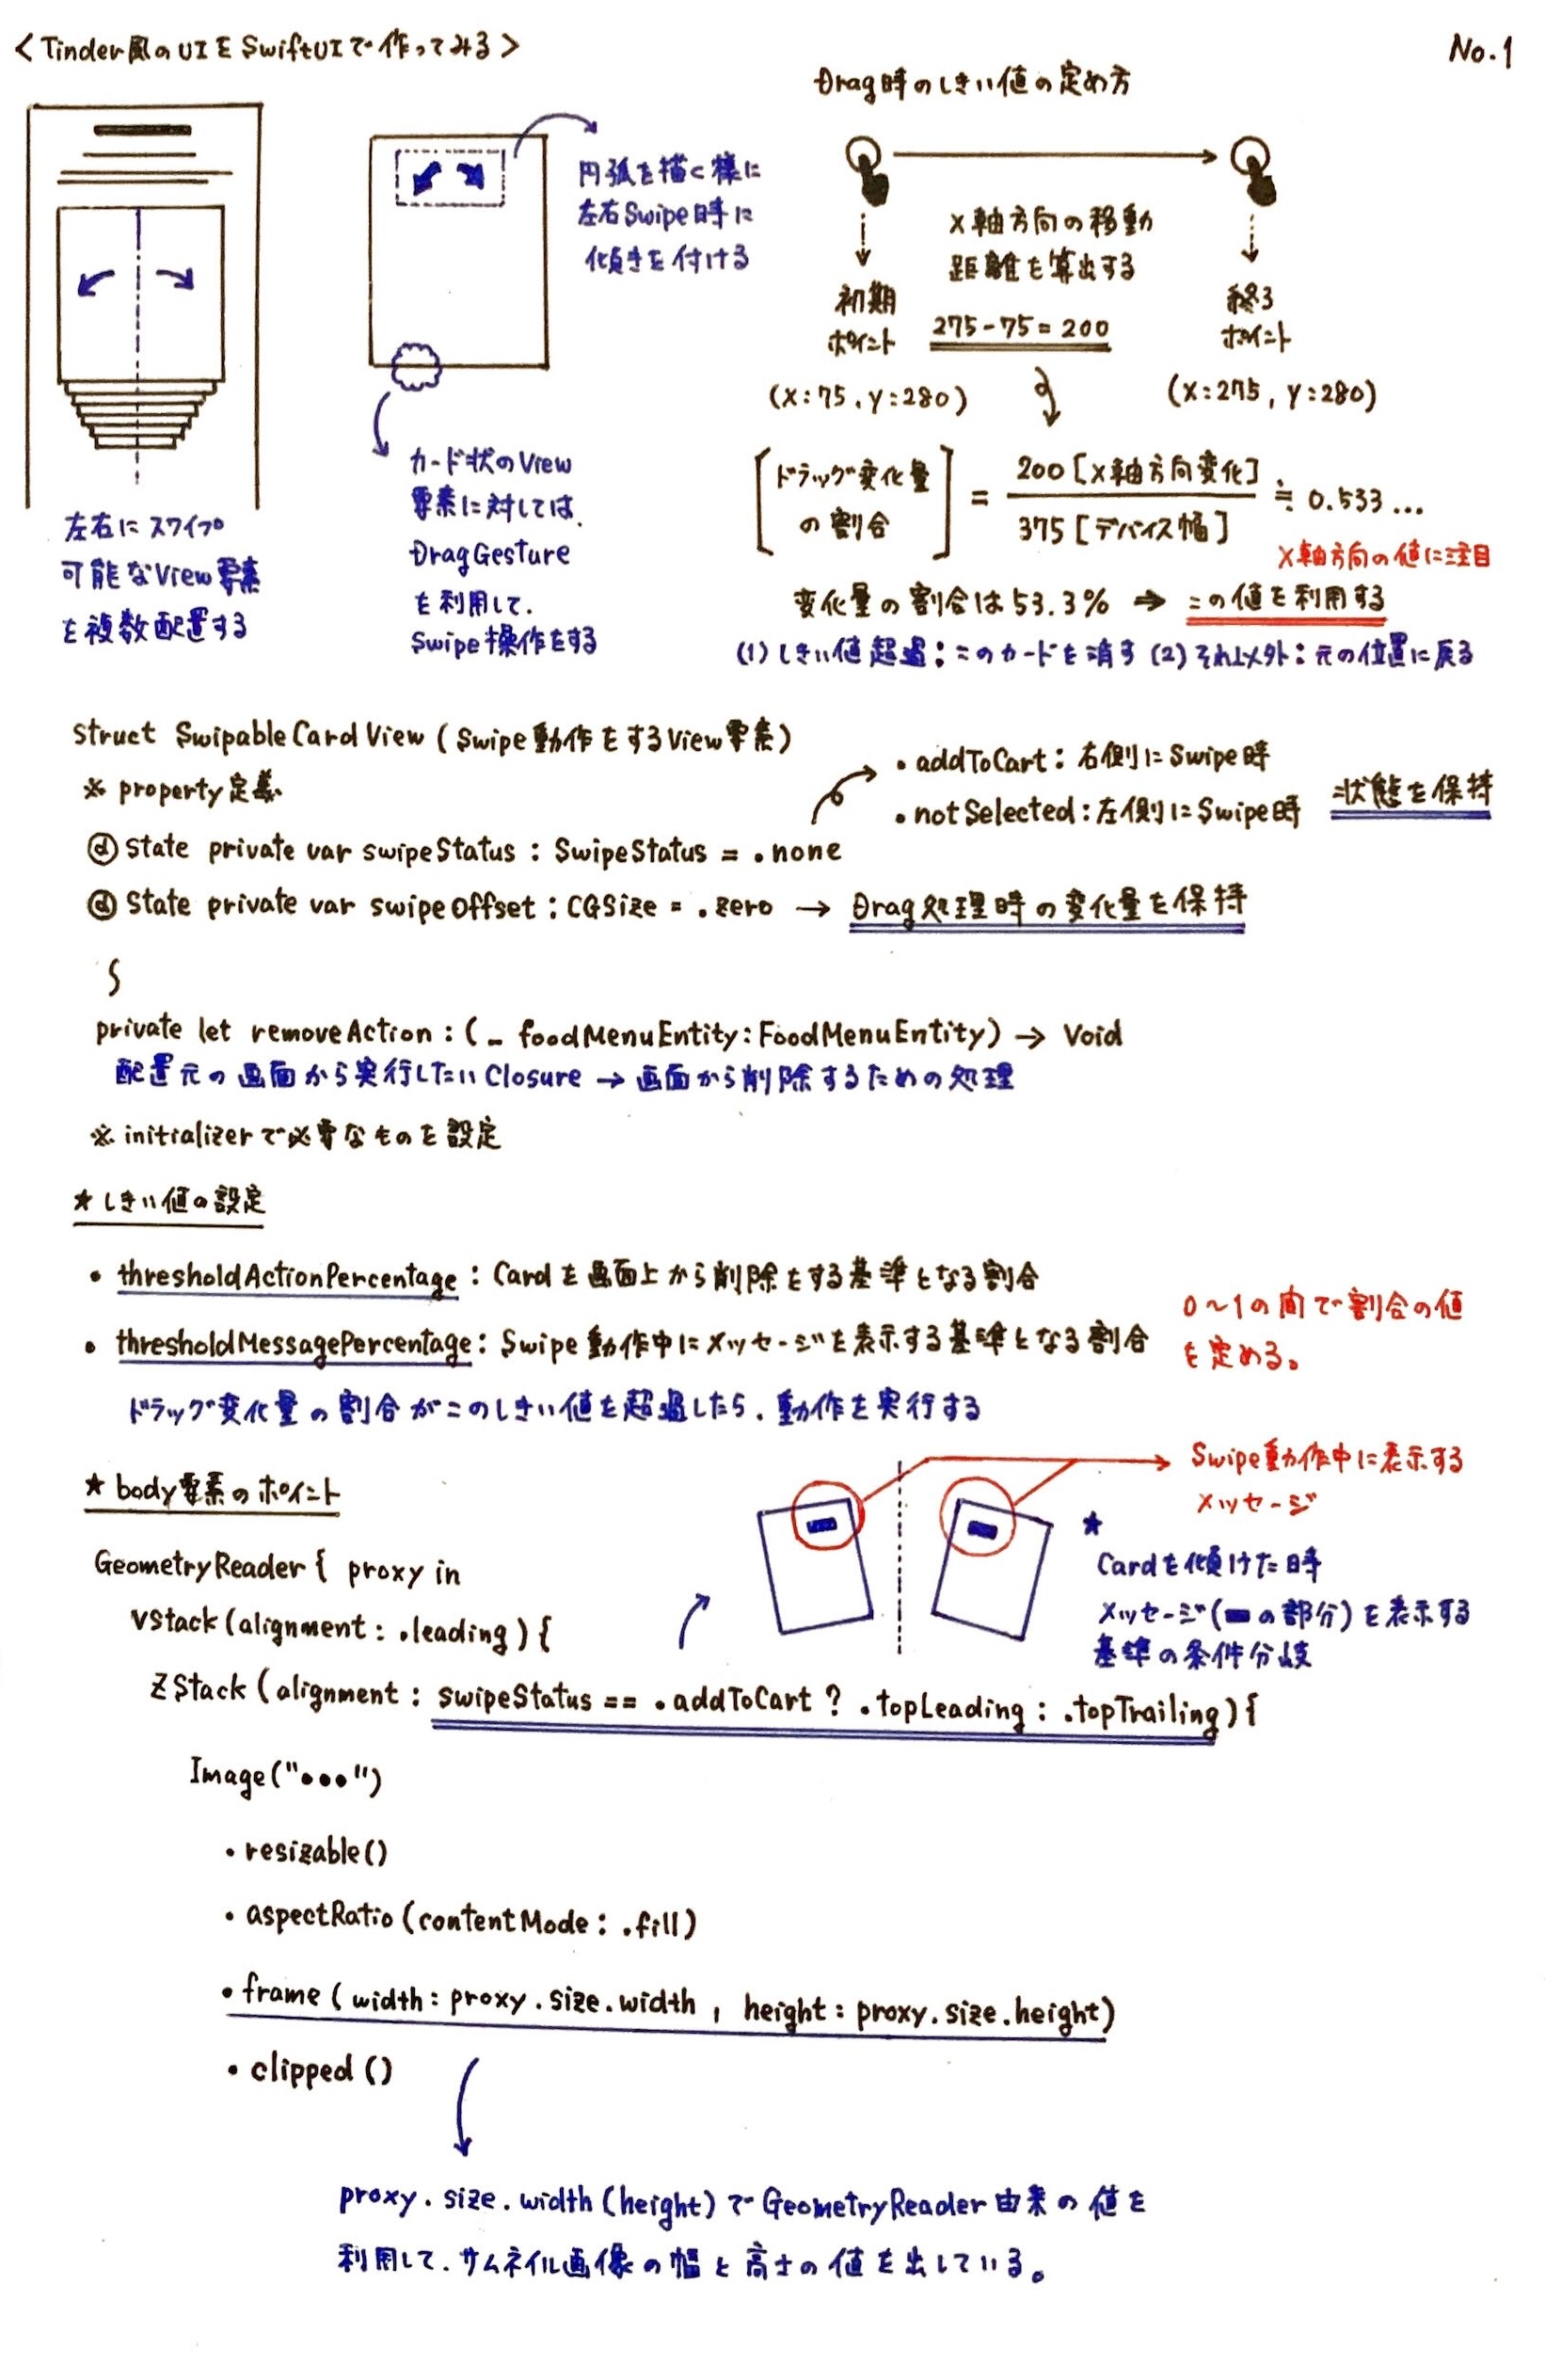 <Tinder風のUIをSwiftUIで作ってみる>
No.1
円弧を描く様に
左右Swipe時に
傾きを付ける
左右にスワイプ
可能なView要素
を複数配置する
カード状のView
要素に対しては、
DragGesture
を利用して、
Swipe操作をする
Drag時のしきい値の定め方
X軸方向の移動
距離を算出する
275-75=200
初期
ポイント
(X:75, Y:280)
終了
ポイント
(X:275, Y:280)
ドラッグ変化量
の割合
=
200[X軸方向変化]
375[デバイス幅]
≒ 0.533...
X軸方向の値に注目
変化量の割合は53.3% ⇒ この値を利用する
(1)しきい値超過:このカードを消す (2)それ以外:元の位置に戻る
struct SwipableCardView (Swipe動作をするView要素)
※ property定義
・addToCart: 右側にSwipe時
・notSelected:左側にSwipe時
状態を保持
@State private var swipeStatus : SwipeStatus = .none
@State private var swipeOffset : CGSize = .zero → Drag処理時の変化量を保持
private let removeAction : (_ foodMenuEntity: FoodMenuEntity) → Void
配置元の画面から実行したいClosure → 画面から削除するための処理
※ initializerで必要なものを設定
★ しきい値の設定
・thresholdActionPercentage : Cardを画面上から削除をする基準となる割合
・thresholdMessagePercentage: Swipe動作中にメッセージを表示する基準となる割合
0〜1の間で割合の値
を定める。
ドラッグ変化量の割合がこのしきい値を超過したら、動作を実行する
★ body要素のポイント
Swipe動作中に表示する
メッセージ
★
Cardを傾けた時
メッセージ(▬の部分)を表示する
基準の条件分岐
GeometryReader { proxy in
VStack (alignment: .leading) {
ZStack (alignment : swipeStatus == .addToCart ? .topLeading : .topTrailing) {
Image("•••")
.resizable()
.aspectRatio (contentMode: .fill)
.frame ( width: proxy.size.width , height: proxy.size.height)
.clipped ()
proxy.size.width (height) で GeometryReader由来の値を
利用して、サムネイル画像の幅と高さの値を出している。